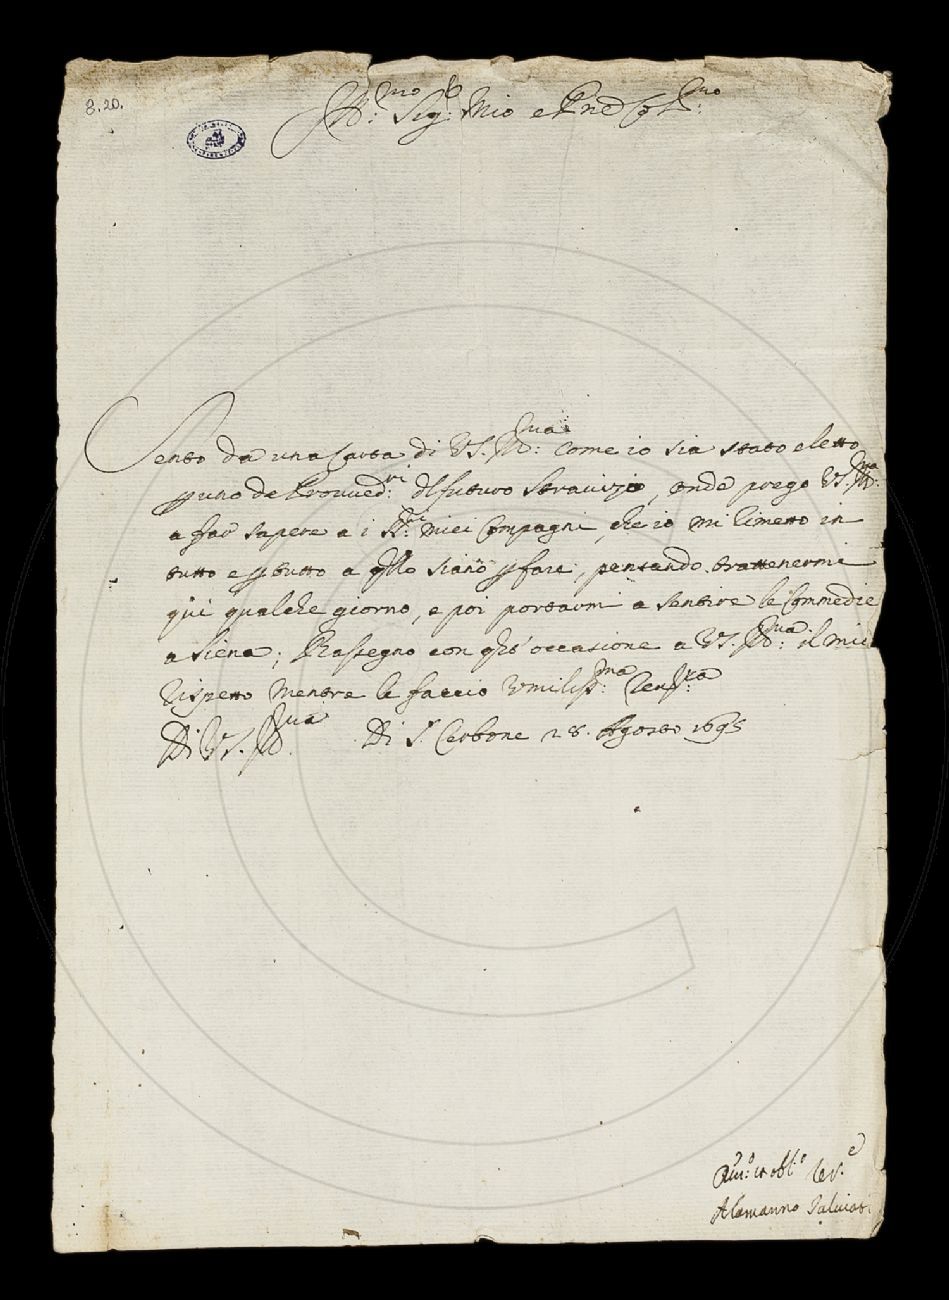 8. 20.
Ill:mo Sig:r Mio e Pne Col:mo
Sento da una Carta di VS. Ill:ma come io sia stato eletto
p uno de Proued:ri del futuro Stravizio, onde prego VS. Ill:ma
a far sapere a i SS:ri miei Compagni, che io mi rimetto in
tutto e p tutto a qllo siano p fare, pensando trattenermi
qui qualche giorno, e poi portarmi a sentire le Commedie
a Siena; Rassegno con qsto occasione a VS. Ill:ma il mio
rispetto mentre le faccio umiliss:ma reu:za
Di VS. Ill:ma Di S. Cerbone 28. Agosto 1695
Diu:o et obl:o Ser:e
Alamanno Salviati